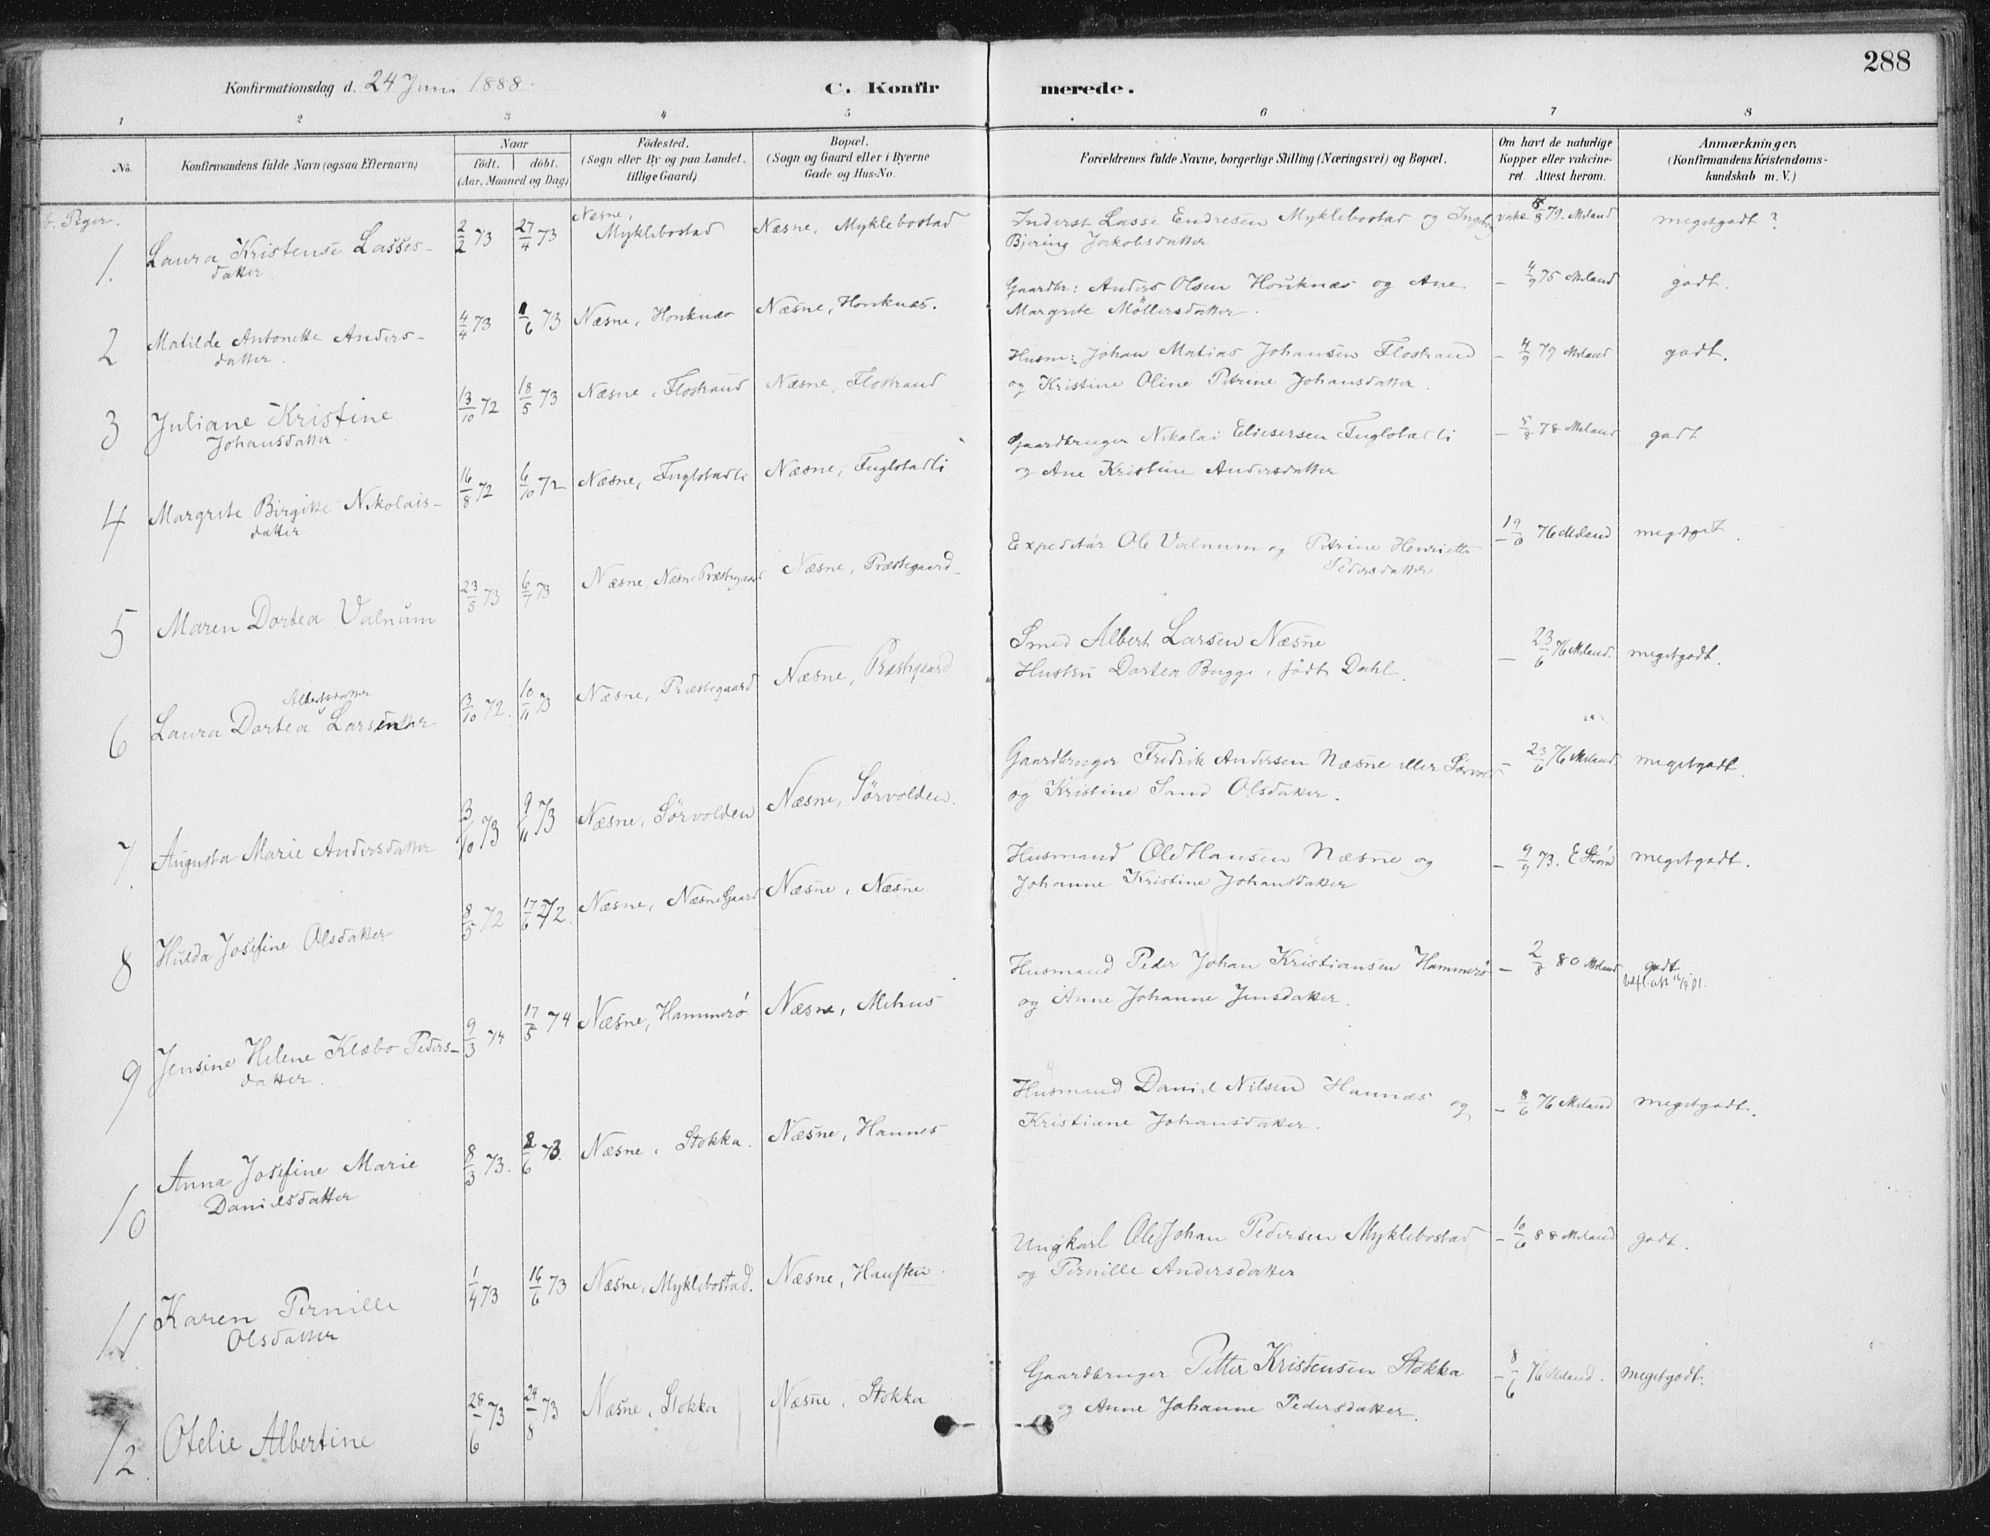 288
Konfirmationsdag d. 24 Juni 1888.
C. Konfirmerede.
1 2 3 4 5 6 7 8
No.
Konfirmandens fulde Navn (ogsaa Efternavn)
Naar
født. døbt.
(Aar, Maaned og Dag)
Fødested.
(Sogn eller By og paa Landet.
tillige Gaard)
Bopæl.
(Sogn og Gaard eller i Byerne
Gade og Hus-No.
Forældrenes fulde Navne, borgerlige Stilling (Næringsvei) og Bopæl.
Om havt de naturlige
Kopper eller vakcine-
ret. Attest herom.
Anmærkninger,
(Konfirmandens Kristendoms-
kundskab m. V.)
b. Piger.
1. Laura Kristense Lasses-
datter
2/2 73 27/4 73 Næsne, Myklebostad Næsne, Myklebostad
Inderst Lasse Endresen Myklebostad og
Bjering Jakobsdatter
vakc 8/8 79. Meland megetgodt?
2 Matilde Antonette Anders-
datter.
4/4 73 1/6 73 Næsne, Honknæs Næsne, Honknæs.
Gaardbr: Anders Olsen Honknæs og Ane
Margrete Möllersdatter.
— 4/9 75 Meland godt.
3 Juliane Kristine
Johansdatter.
13/10 72 18/5 73 Næsne, Flostrand Næsne, Flostrand
Husm: Johan Matias Johansen Flostrand
og Kristine Oline Petrine Johansdatter.
— 4/9 79 Meland godt.
4 Margrete Birgitte Nikolais-
datter
16/8 72 6/10 72 Næsne, Fuglstadli Næsne, Fuglstadli
Gaardbruger Nikolai Eliesersen Fuglstadli
og Ane Kristine Andersdatter
— 5/8 78 Meland godt
5 Maren Dortea Valnum
23/5 73 6/7 73 Næsne, Næsne Præstegaard Næsne, Præstegaard
Expeditør Ole Valnum og Petrine Henriette
Pedersdatter
— 76 Meland megetgodt.
6 Laura Dortea Albertsdatter Larsen
3/10 72. 10/11 73 Næsne, Præstegaard Næsne, Præstegaard
Smed Albert Larsen Næsne
Hustru Dortea Bugge, födt Dahl.
— 23/6 76 Meland. megetgodt.
7. Augusta Marie Andersdatter
3/10 73 9/11 73 Næsne, Sörvolden Næsne, Sörvolden.
Gaardbruger Fredrik Andersen Næsne eller Sörvold
og Kristine Sand Olsdatter.
— 23/6 76 Meland. megetgodt.
8 Hulda Josefine Olsdatter
8/5 72 17/6 72. Næsne, Næsne Gaard Næsne, Næsne
Husmand Ole Hansen Næsne og
Johanne Kristine Johansdatter
— 9/9 73. E Ström megetgodt.
9 Jensine Helene Klæbo Peders-
datter.
9/3 74 17/5 74 Næsne, Hammerö Næsne, Mehus
Husmand Peder Johan Kristiansen Hammerö
og Anne Johanne Jensdatter.
— 2/8 80 Meland godt
10 Anna Josefine Marie
Danielsdatter
8/3 73. 2/6 73. Næsne, Stokka. Næsne, Hannes
Husmand Daniel Nilsen Hannæs og
Kristiane Johansdatter.
— 8/6 76 Meland megetgodt.
11 Karen Pernille
Olsdatter
1/4 73 16/6 73 Næsne, Myklebostad. Næsne, Hauften.
Ungkarl Ole Johan Pedersen Myklebostad
og Pernille Andersdatter
— 10/6 88 Meland godt.
12. Otelie Albertine
28/6 73 24/8 73 Næsne, Stokka Næsne, Stokka
Gaardbruger Petter Kristensen Stokka
og Anne Johanne Pedersdatter.
— 8/6 76 Meland. megetgodt.